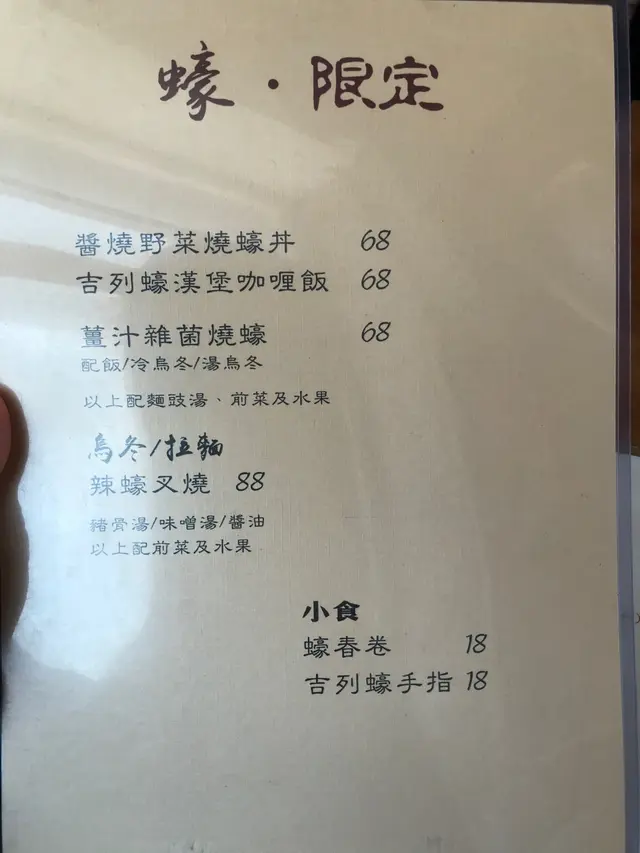 蠔·限定
醬燒野菜燒蠔丼 68
吉列蠔漢堡咖喱飯 68
薑汁雜菌燒蠔 68
配飯/冷烏冬/湯烏冬
以上配麵豉湯、前菜及水果
烏冬/拉麵
辣蠔叉燒 88
豬骨湯/味噌湯/醬油
以上配前菜及水果
小食
蠔春卷 18
吉列蠔手指 18